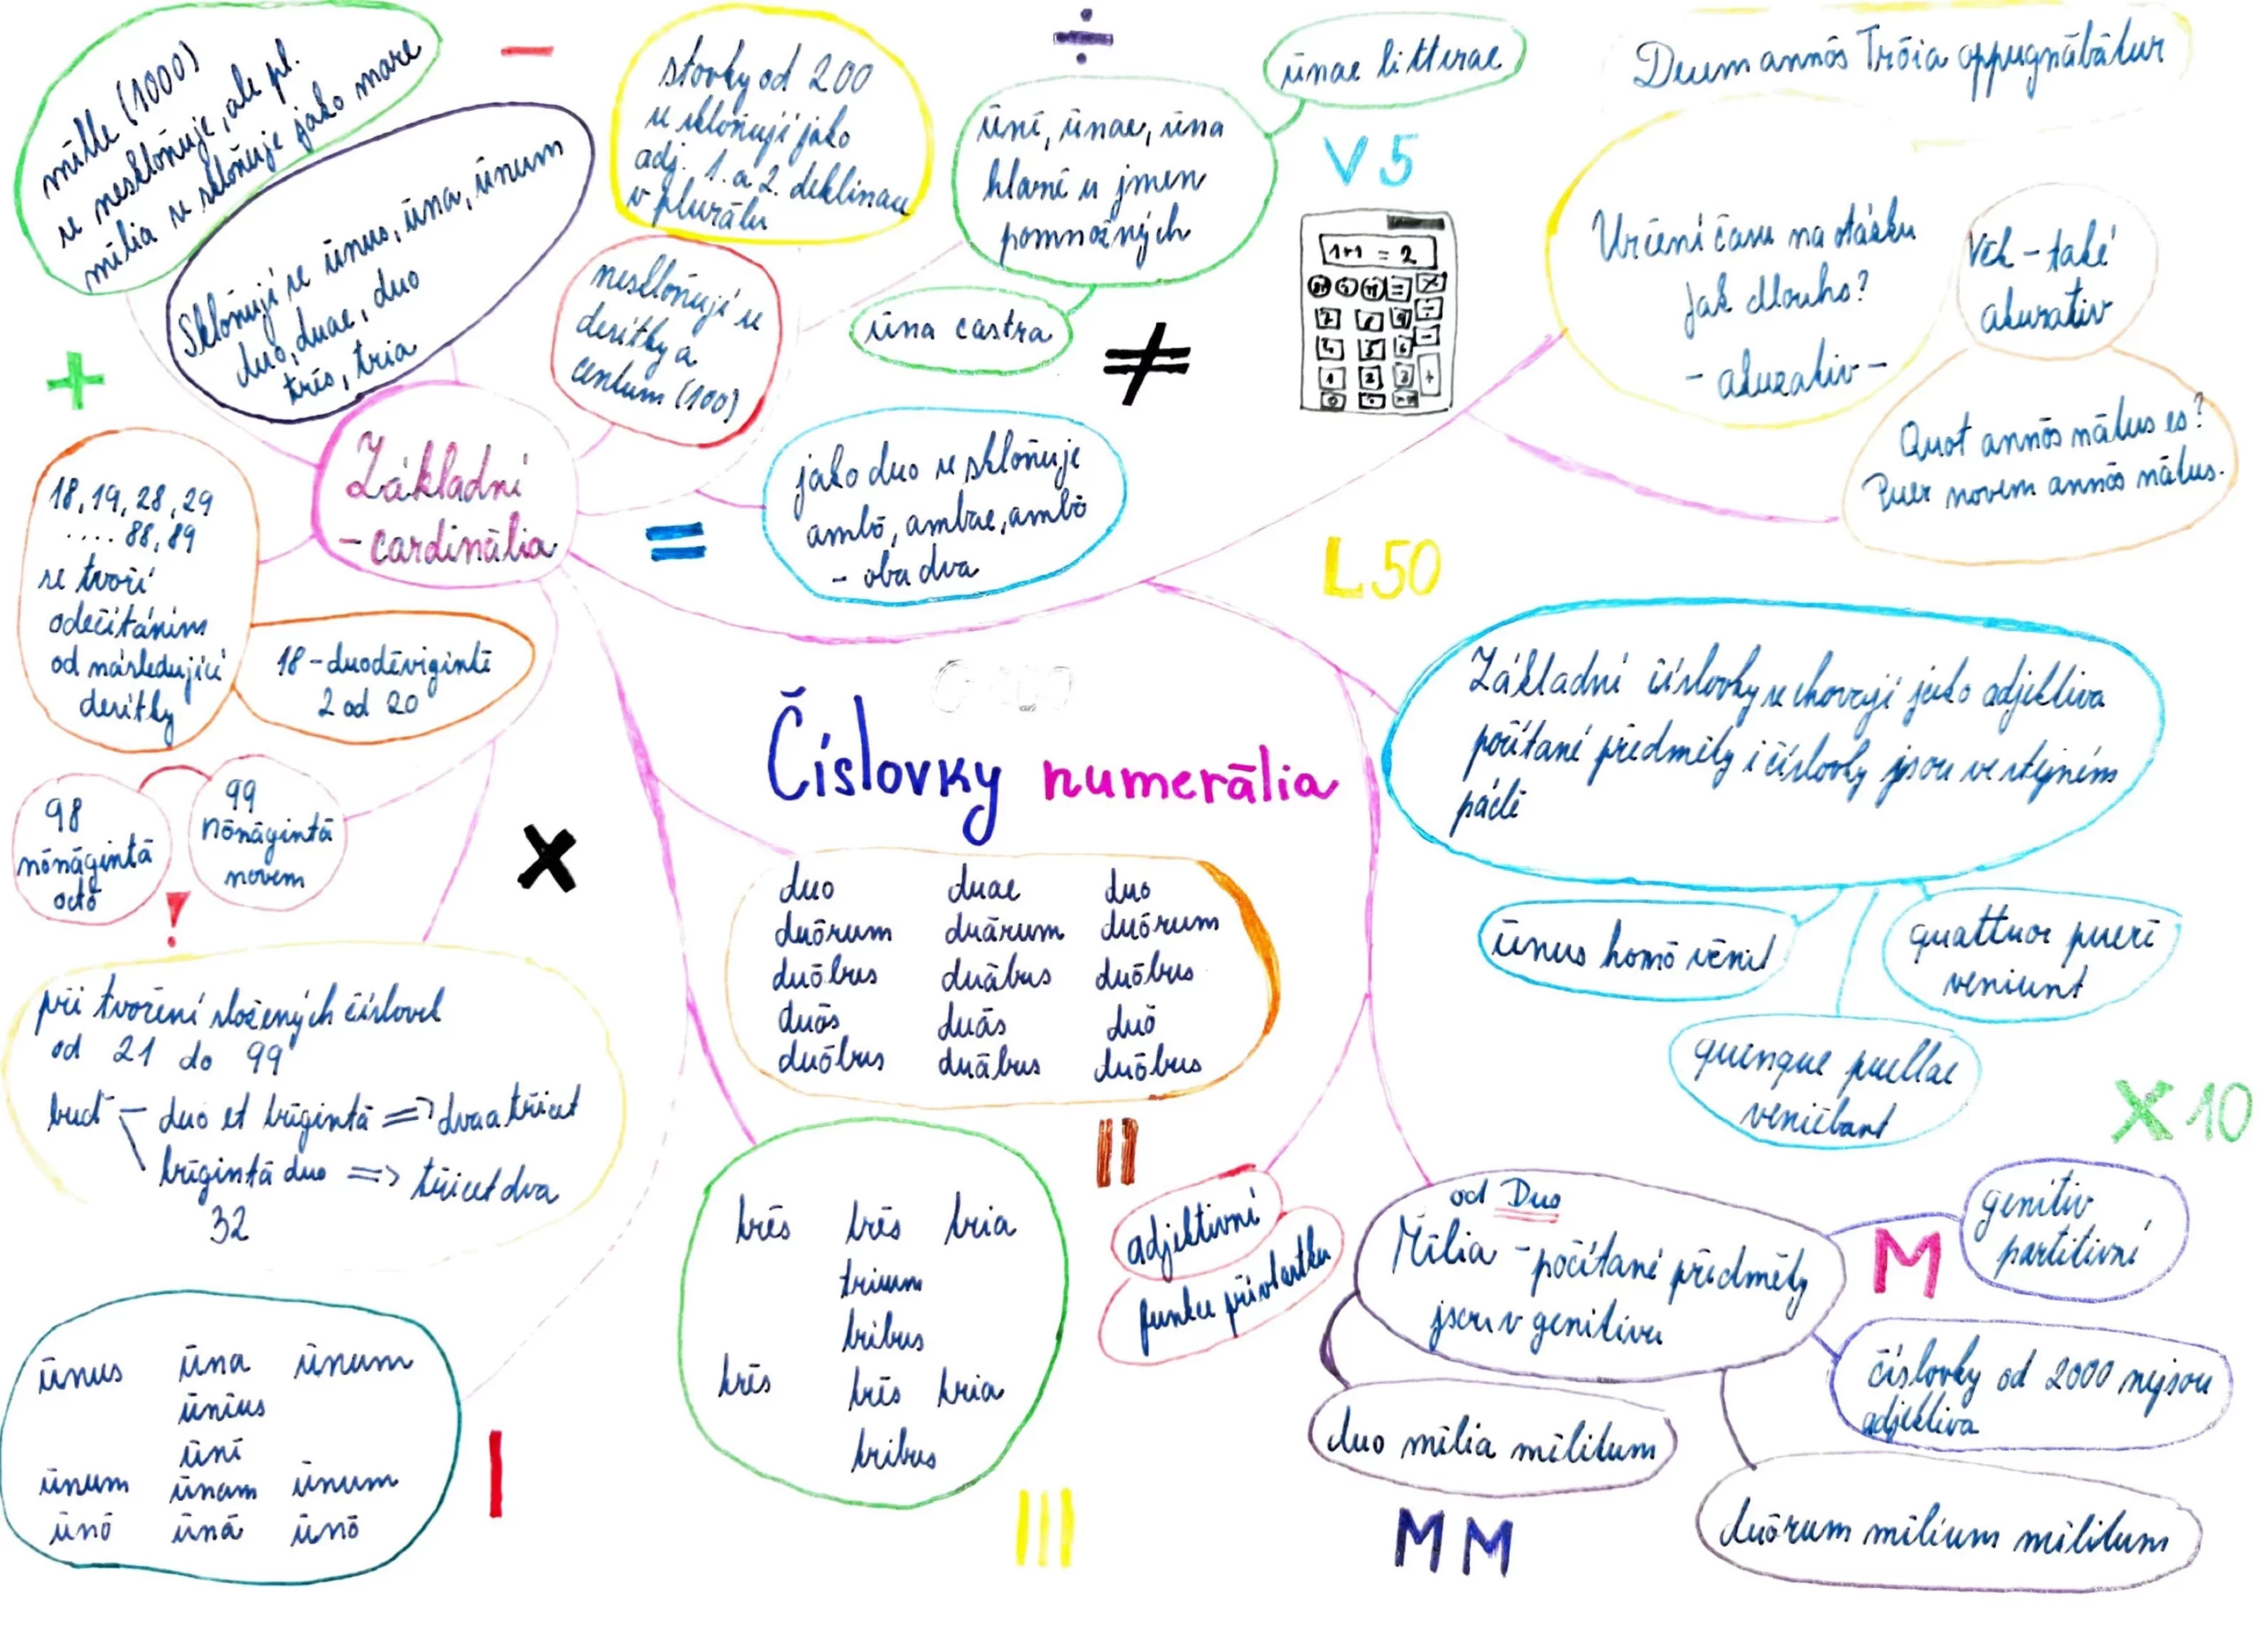 mīlle (1000)
se nesklōnuje, ale pl.
mīlia se sklōnuje jako mare
−
Sklōnují se ūnus, ūna, ūnum
duo, duae, duo
trēs, tria
stovky od 200
se sklonují jako
adj. 1. a 2. deklinace
v plurálu
÷
ūnī, ūnae, ūna
hlavně u jmen
pomnožných
ūnae litterae
ūna castra
nesklōnují se
desítky a
centum (100)
V 5
1+1 = 2
≠
annōs Trōia oppugnābātur
Určení času na otázku
Jak dlouho?
- akuzativ -
Věk - také
akuzativ
Quot annōs nātus es?
Puer novem annōs nātus.
+
Základní
- cardinālia
=
jako duo se sklōnuje
ambō, ambae, ambō
- oba dva
L 50
18, 19, 28, 29
.... 88, 89
se tvoří
odečítáním
od následující
desítky
18 - duodēvigintī
2 od 20
98
nōnāgintā
octō
99
nōnāgintā
novem
!
×
Číslovky numerālia
Základní číslovky se chovají jako adjektiva
počítané předměty i číslovky jsou ve stejném
pádě
ūnus homō vēnit
quattuor puerī
veniunt
quenque puellae
veniēbant
X 10
duo duae duo
duōrum duārum duōrum
duōbus duābus duōbus
duōs duās duō
duōbus duābus duōbus
II
při tvoření složených číslovek
od 21 do 99
buď - duo et trīgintā => dvaatřicet
trīgintā duo => třicetdva
32
trēs trēs tria
trium
tribus
trēs trēs tria
tribus
III
adjektivní
funkce přívlastku
od Duo
Mīlia - počítané předměty
jsou v genitivu
M
genitiv
partitivní
číslovky od 2000 nejsou
adjektiva
duo mīlia mīlitum
duōrum mīlium mīlitum
MM
ūnus ūna ūnum
ūnīus
ūnī
ūnum ūnam ūnum
ūnō ūnā ūnō
I